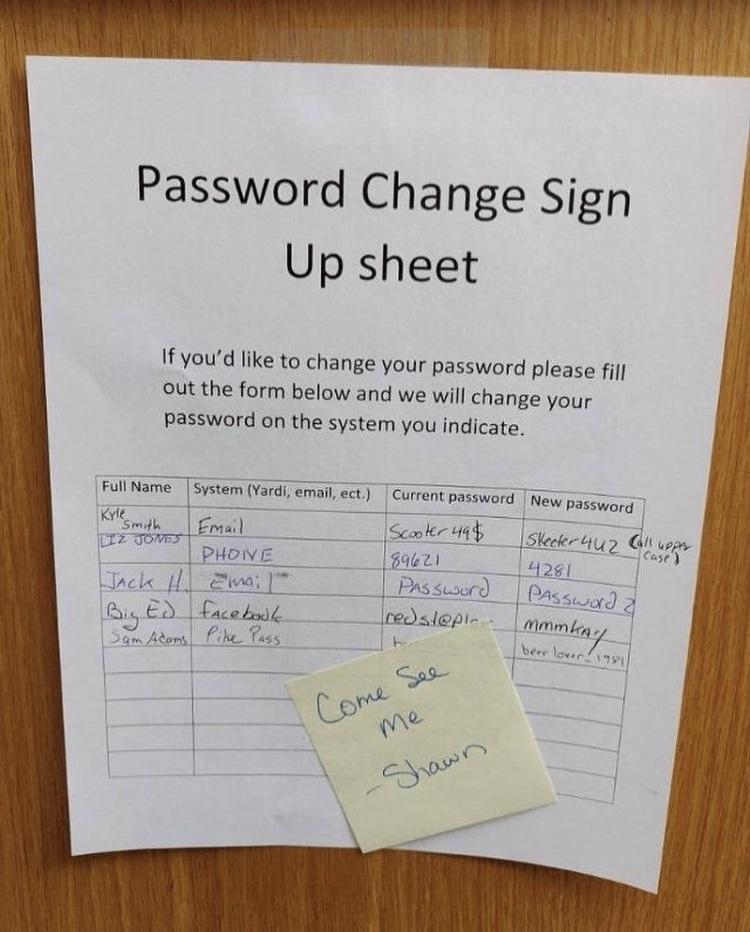 Password Change Sign
Up sheet
If you'd like to change your password please fill
out the form below and we will change your
password on the system you indicate.
Full Name System (Yardi, email, ect.) Current password New password
Kyle Smith Email Scooter 49$ Skeeter 4U2 (all upper case)
LIZ JONES PHONE 89621 4281
Jack H. Email PASSword PASSword 2
Big Ed facebook mmmkay
Sam Adams Pike Pass beer lover 1981
Come See
Me
-Shawn